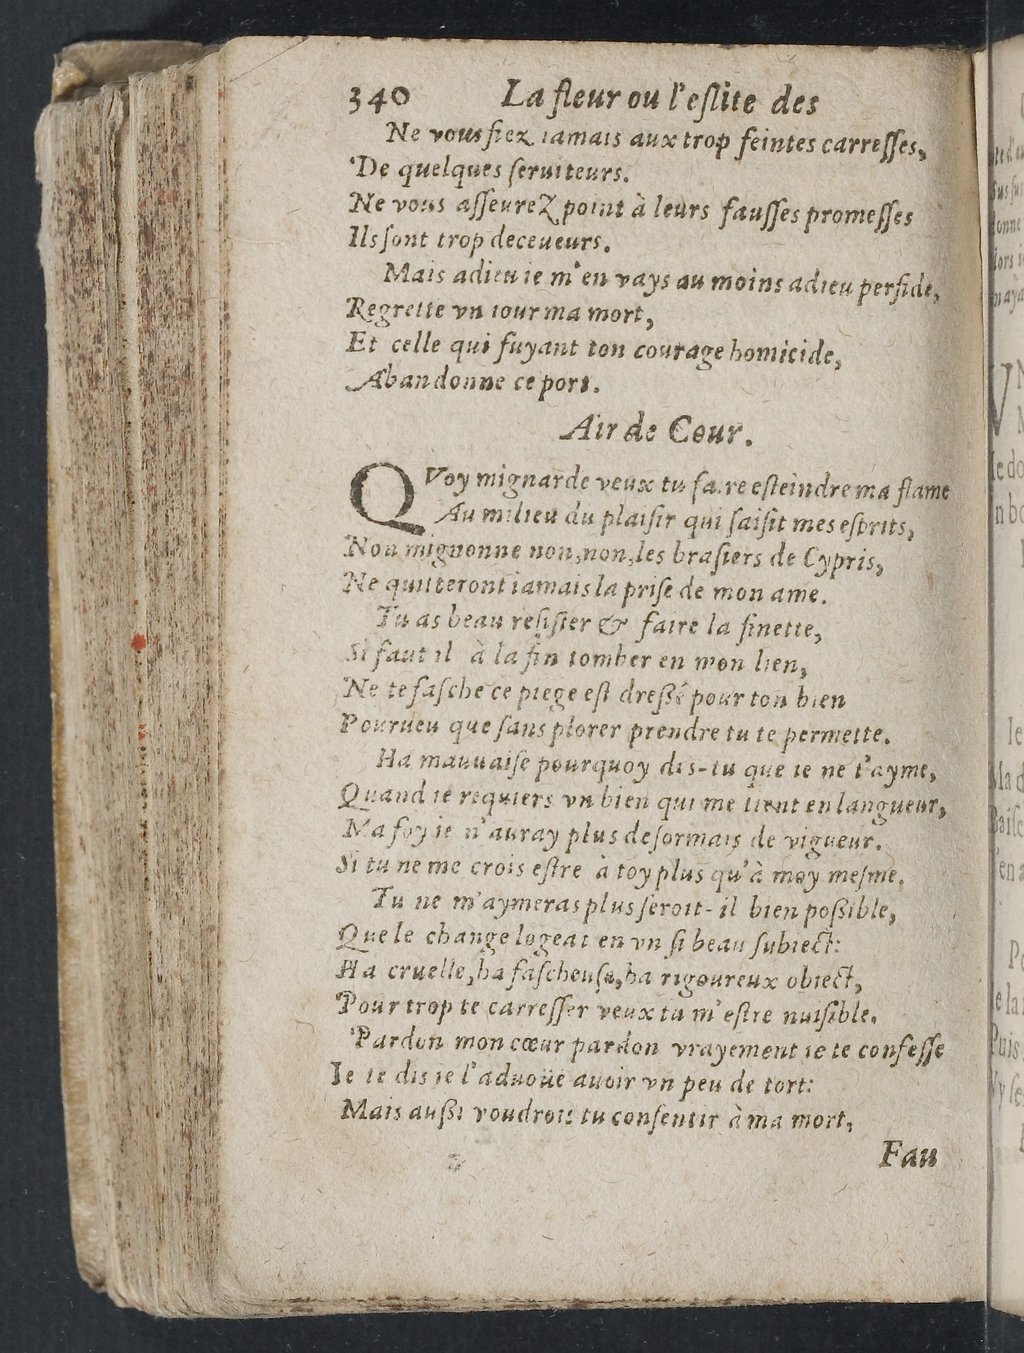 340 La fleur ou l'eſlite des
Ne vous fiez iamais aux trop feintes carreſſes,
De quelques ſeruiteurs.
Ne vous aſſeurez point à leurs fauſſes promeſſes
Ils ſont trop deceueurs.
Mais adieu ie m'en vays au moins adieu perfide,
Regrette vn iour ma mort,
Et celle qui fuyant ton courage homicide,
Abandonne ce port.
Air de Cour.
QVoy mignarde veux tu faire eſteindre ma flame
Au milieu du plaiſir qui ſaiſit mes eſprits,
Non mignonne non, non, les braſiers de Cypris,
Ne quitteront iamais la priſe de mon ame.
Tu as beau reſiſter & faire la finette,
Si faut il à la fin tomber en mon lien,
Ne te faſche ce piege eſt dreſſé pour ton bien
Pourueu que ſans plorer prendre tu te permette.
Ha mauuaiſe pourquoy dis-tu que ie ne t'ayme,
Quand ie requiers vn bien qui me tient en langueur,
Ma foy ie n'auray plus deſormais de vigueur.
Si tu ne me crois eſtre à toy plus qu'à moy meſme.
Tu ne m'aymeras plus ſeroit-il bien poßible,
Que le change logeat en vn ſi beau ſubiect:
Ha cruelle, ha faſcheuſe, ha rigoureux obiect,
Pour trop te carreſſer veux tu m'eſtre nuiſible.
Pardon mon cœur pardon vrayement ie te confeſſe
Ie te dis ie l'aduoüe auoir vn peu de tort:
Mais außi voudrois tu conſentir à ma mort,
Fau